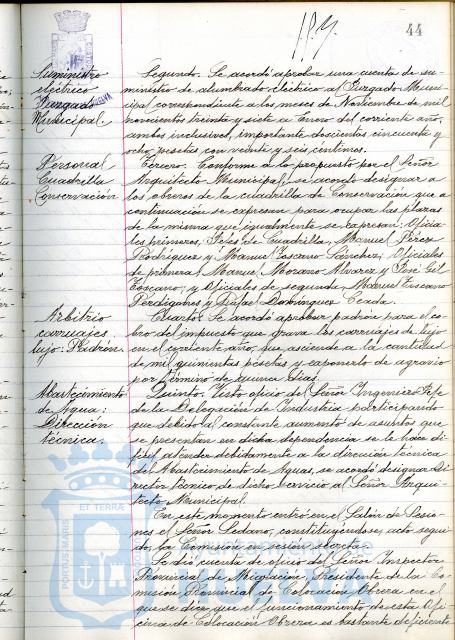 44
Suministro
eléctrico
Juzgado
Municipal.
Segundo. Se acordó aprobar una cuenta de su-
ministro de alumbrado eléctrico al Juzgado Muni-
cipal correspondiente a los meses de Noviembre de mil
novecientos treinta y siete a Enero del corriente año,
ambos inclusives, importante doscientas cincuenta y
ocho pesetas con veinte y seis céntimos.
Personal
Cuadrilla
Conservación
Tercero. Conforme a lo propuesto por el Señor
Arquitecto Municipal, se acordó designar a
los obreros de la cuadrilla de Conservación que a
continuación se expresan para ocupar las plazas
de la misma que igualmente se expresan: Oficia-
les primeros, Jefes de Cuadrilla, Manuel Pérez
Rodríguez y Manuel Toscano Sánchez; Oficiales
de primera, Manuel Morano Alvarez y José Gil
Toscano, y Oficiales de segunda, Manuel Toscano
Perdigones y Rafael Domínguez Ceada.
Arbitrio
carruajes
lujo. Padrón.
Cuarto. Se acordó aprobar padrón para el co-
bro del impuesto que grava los carruajes de lujo
en el corriente año, que asciende a la cantidad
de mil quinientas pesetas y exponerlo de agravio
por término de quince días.
Abastecimiento
de Agua:
Dirección
técnica.
Quinto. Visto oficio del Señor Ingeniero Jefe
de la Delegación de Industria participando
que debido al constante aumento de asuntos que
se presentan en dicha dependencia se le hace di-
fícil atender debidamente a la dirección técnica
de Abastecimiento de Aguas, se acordó designar Di-
rector técnico de dicho servicio al Señor Arqui-
tecto Municipal.
En este momento entró en el Salón de Sesio-
nes el Señor Sedano, constituyéndose, acto segui-
do, la Comisión en sesión secreta.
Se dió cuenta de oficio del Señor Inspector
Provincial de Migración, Presidente de la Co-
misión Provincial de Colocación Obrera en el
que se dice que el funcionamiento de esta Ofi-
cina de Colocación Obrera es bastante deficiente
PORTUS MARIS
ET TERRAE